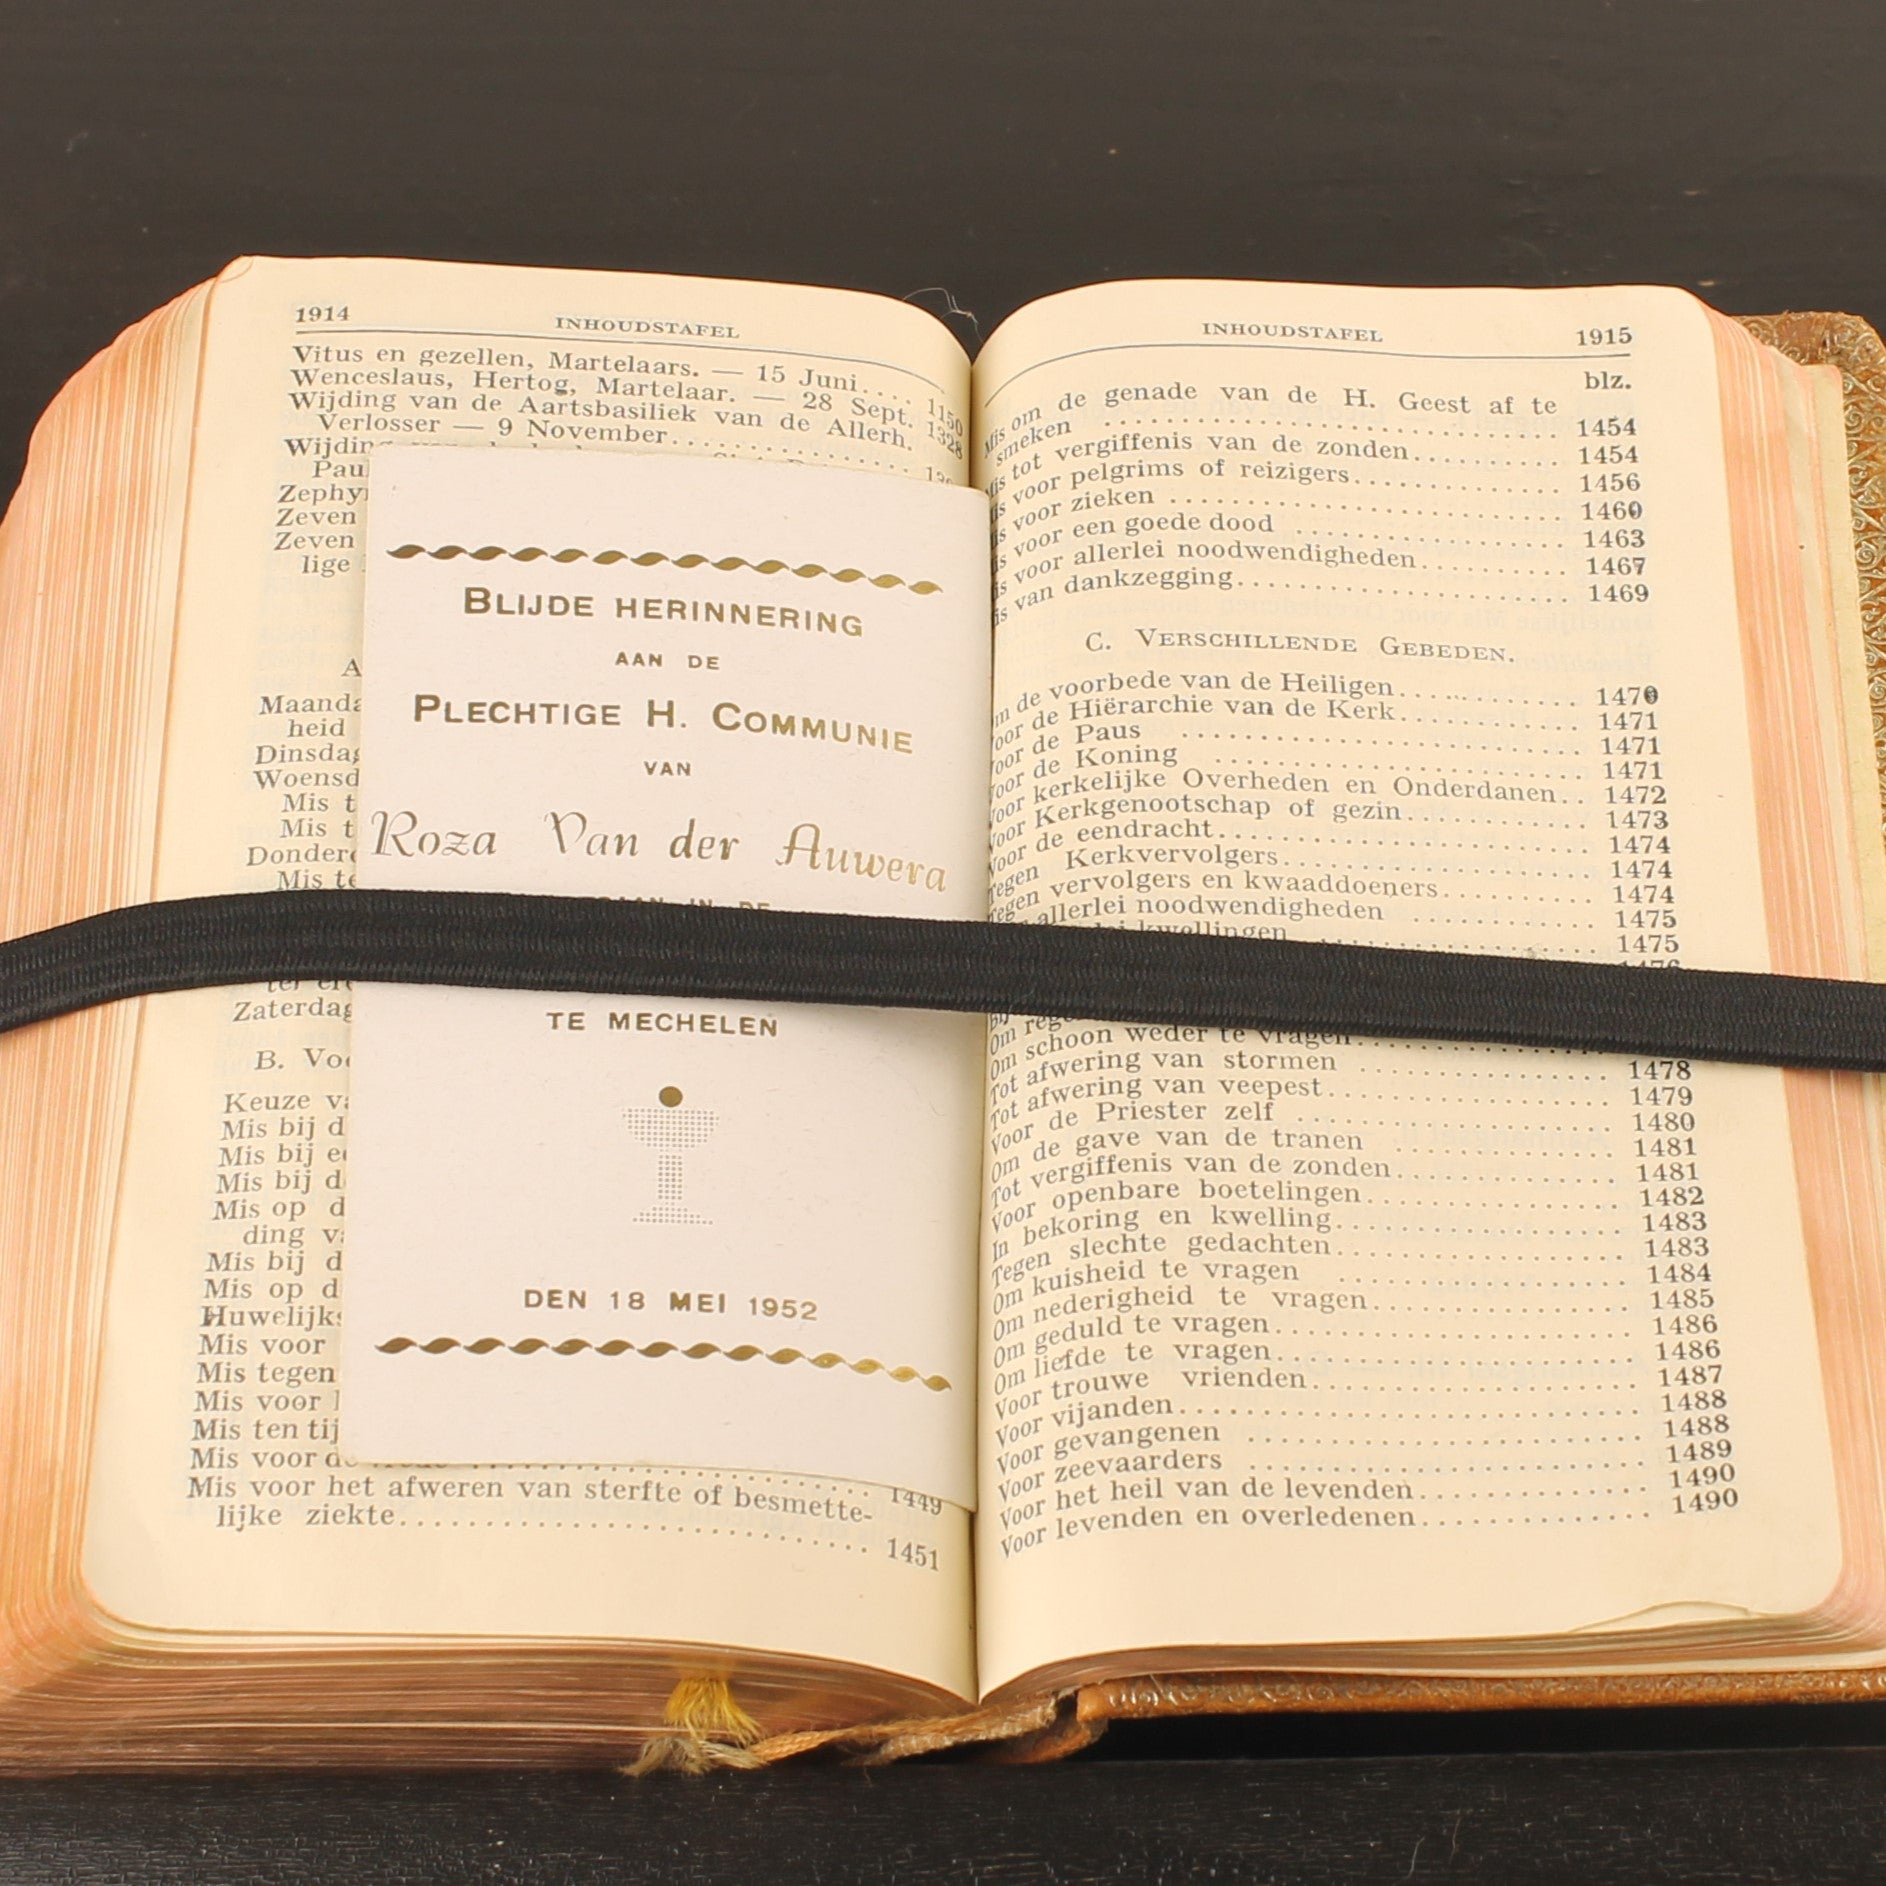 1914
INHOUDSTAFEL
Vitus en gezellen, Martelaars. — 15 Juni.... 1150
Wenceslaus, Hertog, Martelaar. — 28 Sept. 1328
Wijding van de Aartsbasiliek van de Allerh.
Verlosser — 9 November
Wijding
Zeven
Zeven
lige
A
heid
Mis t
Mis t
Zaterdag
B.
Keuze
Mis bij d
Mis bij
Mis bij d
Mis op d
ding
Mis bij d
Mis op d
Mis voor
Mis tegen
Mis voor
Mis ten
Mis voor
1449
Mis voor het afweren van sterfte of besmette-
lijke ziekte 1451
BLIJDE HERINNERING
AAN DE
PLECHTIGE H. COMMUNIE
VAN
Roza Van der Auwera
IN DE
TE MECHELEN
DEN 18 MEI 1952
INHOUDSTAFEL
1915
blz.
Mis om de genade van de H. Geest af te
smeken 1454
Mis tot vergiffenis van de zonden 1454
voor pelgrims of reizigers 1456
voor zieken 1460
voor een goede dood 1463
voor allerlei noodwendigheden 1467
van dankzegging 1469
C. VERSCHILLENDE GEBEDEN.
de voorbede van de Heiligen 1470
voor de Hiërarchie van de Kerk 1471
voor de Paus 1471
voor de Koning 1471
voor kerkelijke Overheden en Onderdanen.. 1472
voor Kerkgenootschap of gezin 1473
Voor de eendracht 1474
Tegen Kerkvervolgers 1474
Tegen vervolgers en kwaaddoeners 1474
allerlei noodwendigheden 1475
kwellingen 1475
1476
Om
Om schoon weder te vragen
Tot afwering van stormen 1478
Tot afwering van veepest 1479
Voor de Priester zelf 1480
Om de gave van de tranen 1481
Tot vergiffenis van de zonden 1481
Voor openbare boetelingen 1482
In bekoring en kwelling 1483
Tegen slechte gedachten 1483
Om kuisheid te vragen 1484
Om nederigheid te vragen 1485
Om geduld te vragen 1486
Om liefde te vragen 1486
Voor trouwe vrienden 1487
Voor vijanden 1488
Voor gevangenen 1488
Voor zeevaarders 1489
Voor het heil van de levenden 1490
Voor levenden en overledenen 1490